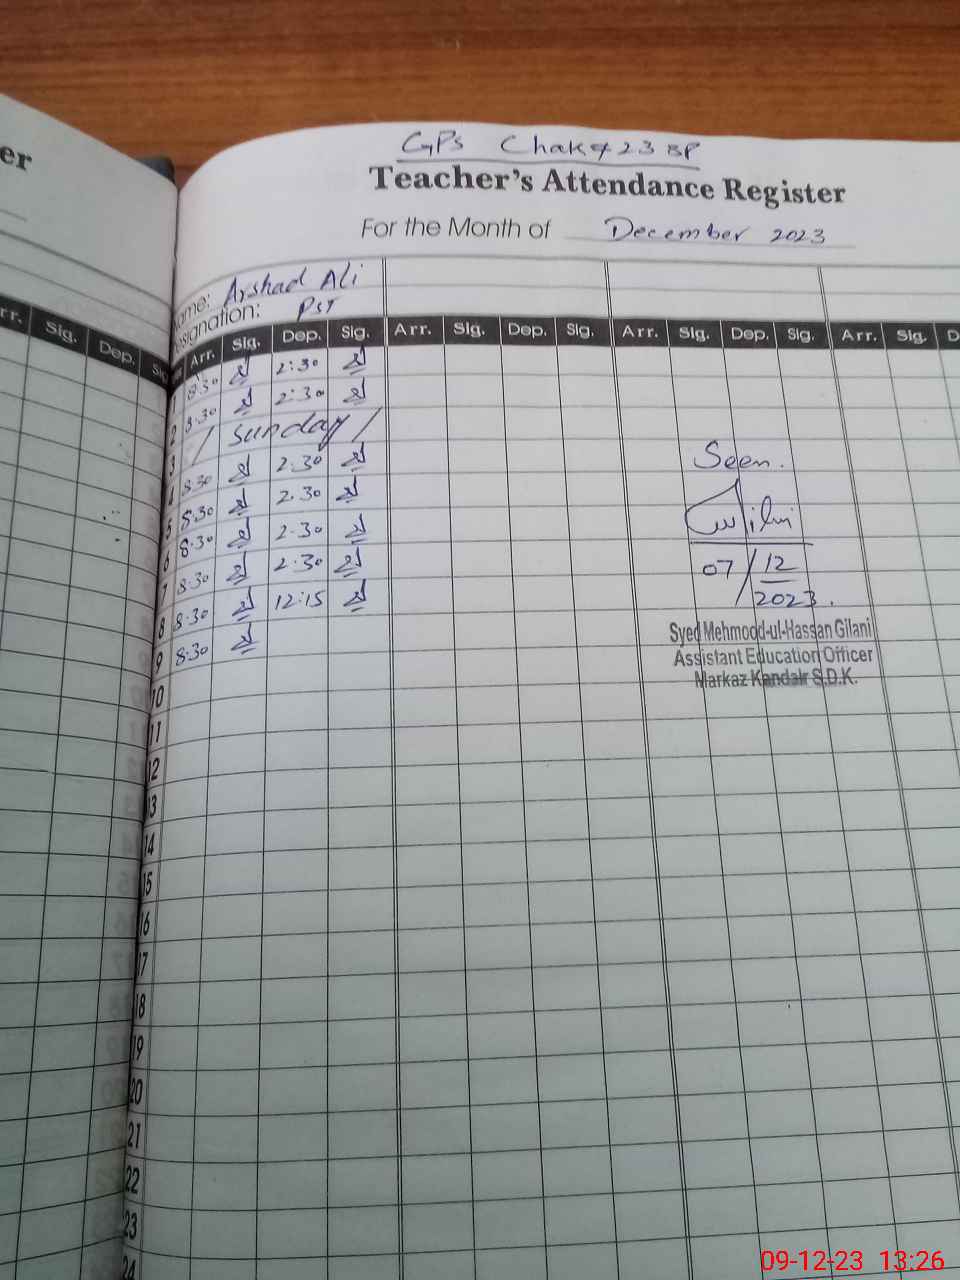 er
rr. Sig. Dep. Sig
GPS Chak 423 BP
Teacher's Attendance Register
For the Month of December 2023
Name: Arshad Ali
Designation: PST
Arr. Sig. Dep. Sig. Arr. Sig. Dep. Sig. Arr. Sig. Dep. Sig. Arr. Sig. D
1 8:30 2:30
2 8:30 2:30
3 / Sunday /
4 8:30 2:30
5 8:30 2.30
6 8:30 2.30
7 8:30 2:30
8 8:30 12:15
9 8:30
Seen.
07/12
2023.
Syed Mehmood-ul-Hassan Gilani
Assistant Education Officer
Markaz Kandair S.D.K.
10
11
12
13
14
15
16
17
18
19
20
21
22
23
24
09-12-23 13:26